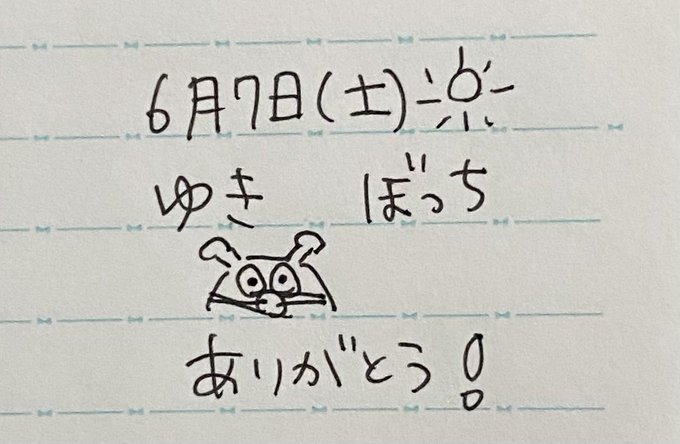 6月7日(土)
ゆき ぼっち
ありがとう!